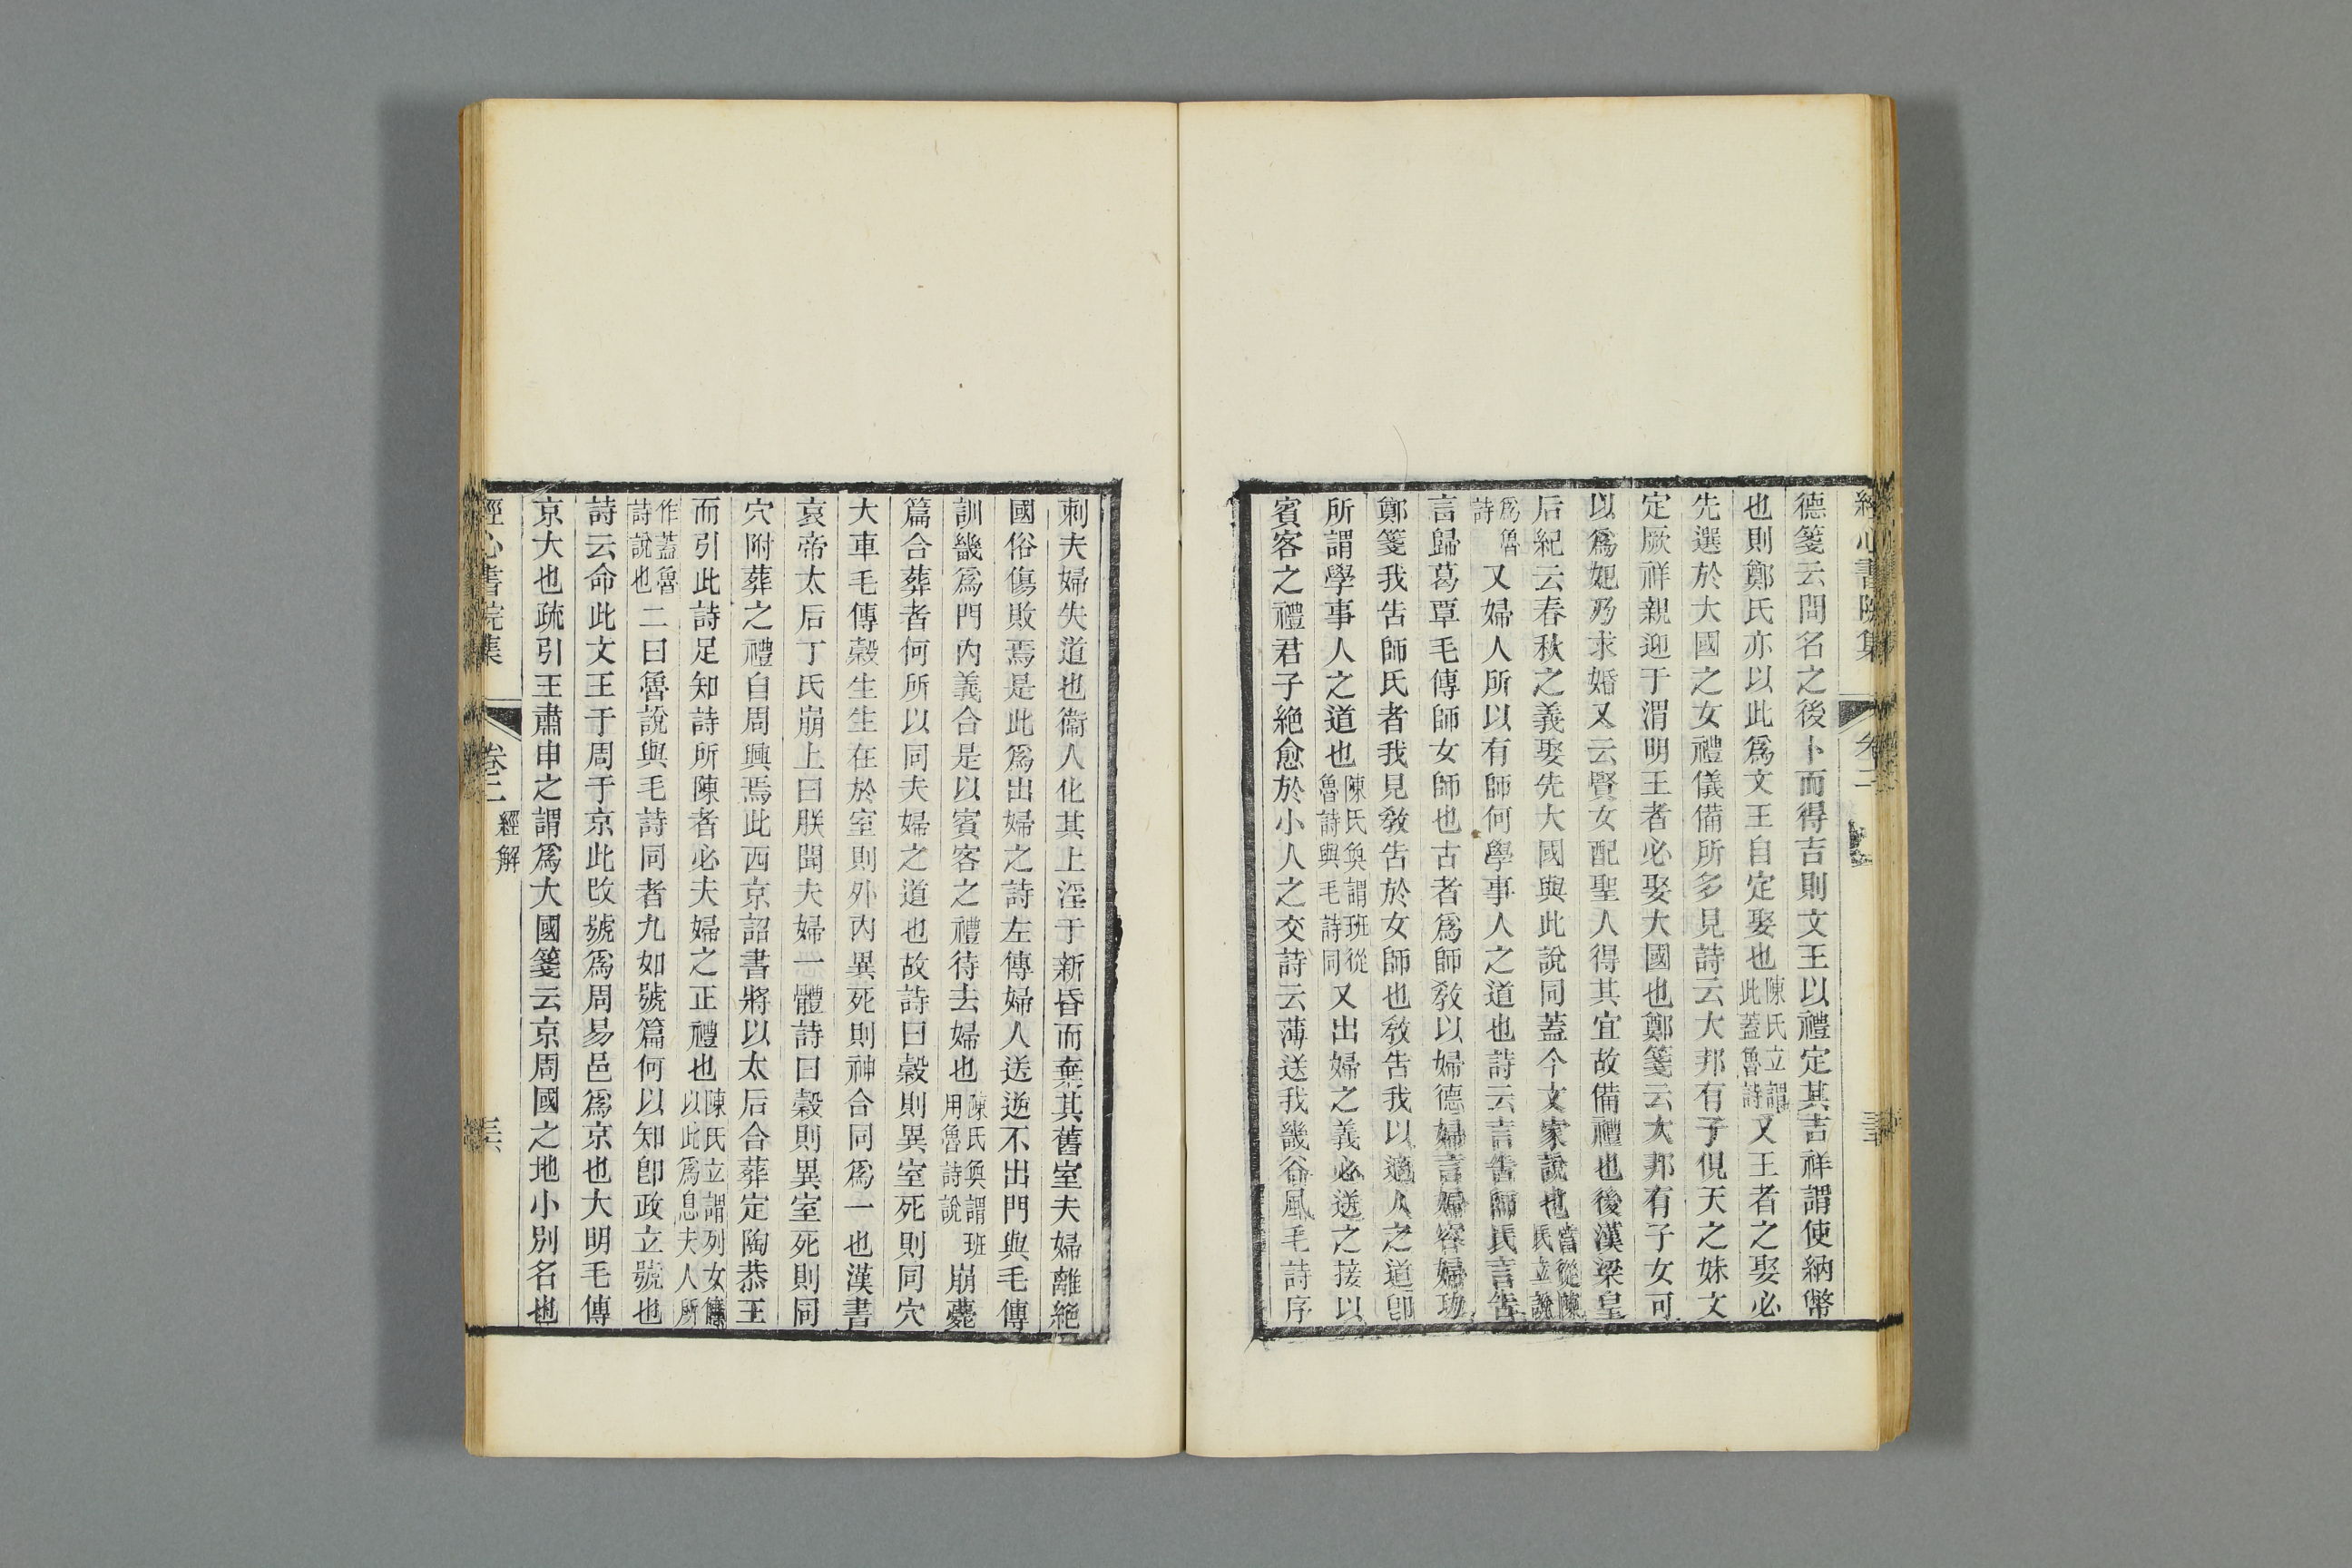 經心書院集 卷二
德箋云問名之後卜而得吉則文王以禮定其吉祥謂使納幣
也則鄭氏亦以此爲文王自定娶也陳氏立謂此蓋魯詩又王者之娶必
先選於大國之女禮儀備所多見詩云大邦有子俔天之妹文
定厥祥親迎于渭明王者必娶大國也鄭箋云大邦有子女可
以爲妃乃求婚又云賢女配聖人得其宜故備禮也後漢梁皇
后紀云春秋之義娶先大國與此說同蓋今文家說也當從陳氏立說
爲魯詩又婦人所以有師何學事人之道也詩云言告師氏言告
言歸葛覃毛傳師女師也古者爲師敎以婦德婦言婦容婦功
鄭箋我告師氏者我見敎告於女師也敎告我以適人之道卽
所謂學事人之道也陳氏奐謂班從魯詩與毛詩同又出婦之義必送之接以
賓客之禮君子絶愈於小人之交詩云薄送我畿谷風毛詩序
刺夫婦失道也衞人化其上淫于新昏而棄其舊室夫婦離絶
國俗傷敗焉是此爲出婦之詩左傳婦人送迎不出門與毛傳
訓畿爲門內義合是以賓客之禮待去婦也陳氏奐謂班用魯詩說崩薨
篇合葬者何所以同夫婦之道也故詩曰穀則異室死則同穴
大車毛傳穀生生在於室則外內異死則神合同爲一也漢書
哀帝太后丁氏崩上曰朕聞夫婦一體詩曰穀則異室死則同
穴附葬之禮自周興焉此西京詔書將以太后合葬定陶恭王
而引此詩足知詩所陳者必夫婦之正禮也陳氏立謂列女傳以此爲息夫人所
作蓋魯詩說也二曰魯說與毛詩同者九如號篇何以知卽政立號也
詩云命此文王于周于京此改號爲周易邑爲京也大明毛傳
京大也疏引王肅申之謂爲大國箋云京周國之地小別名也
經心書院集 卷二 經解